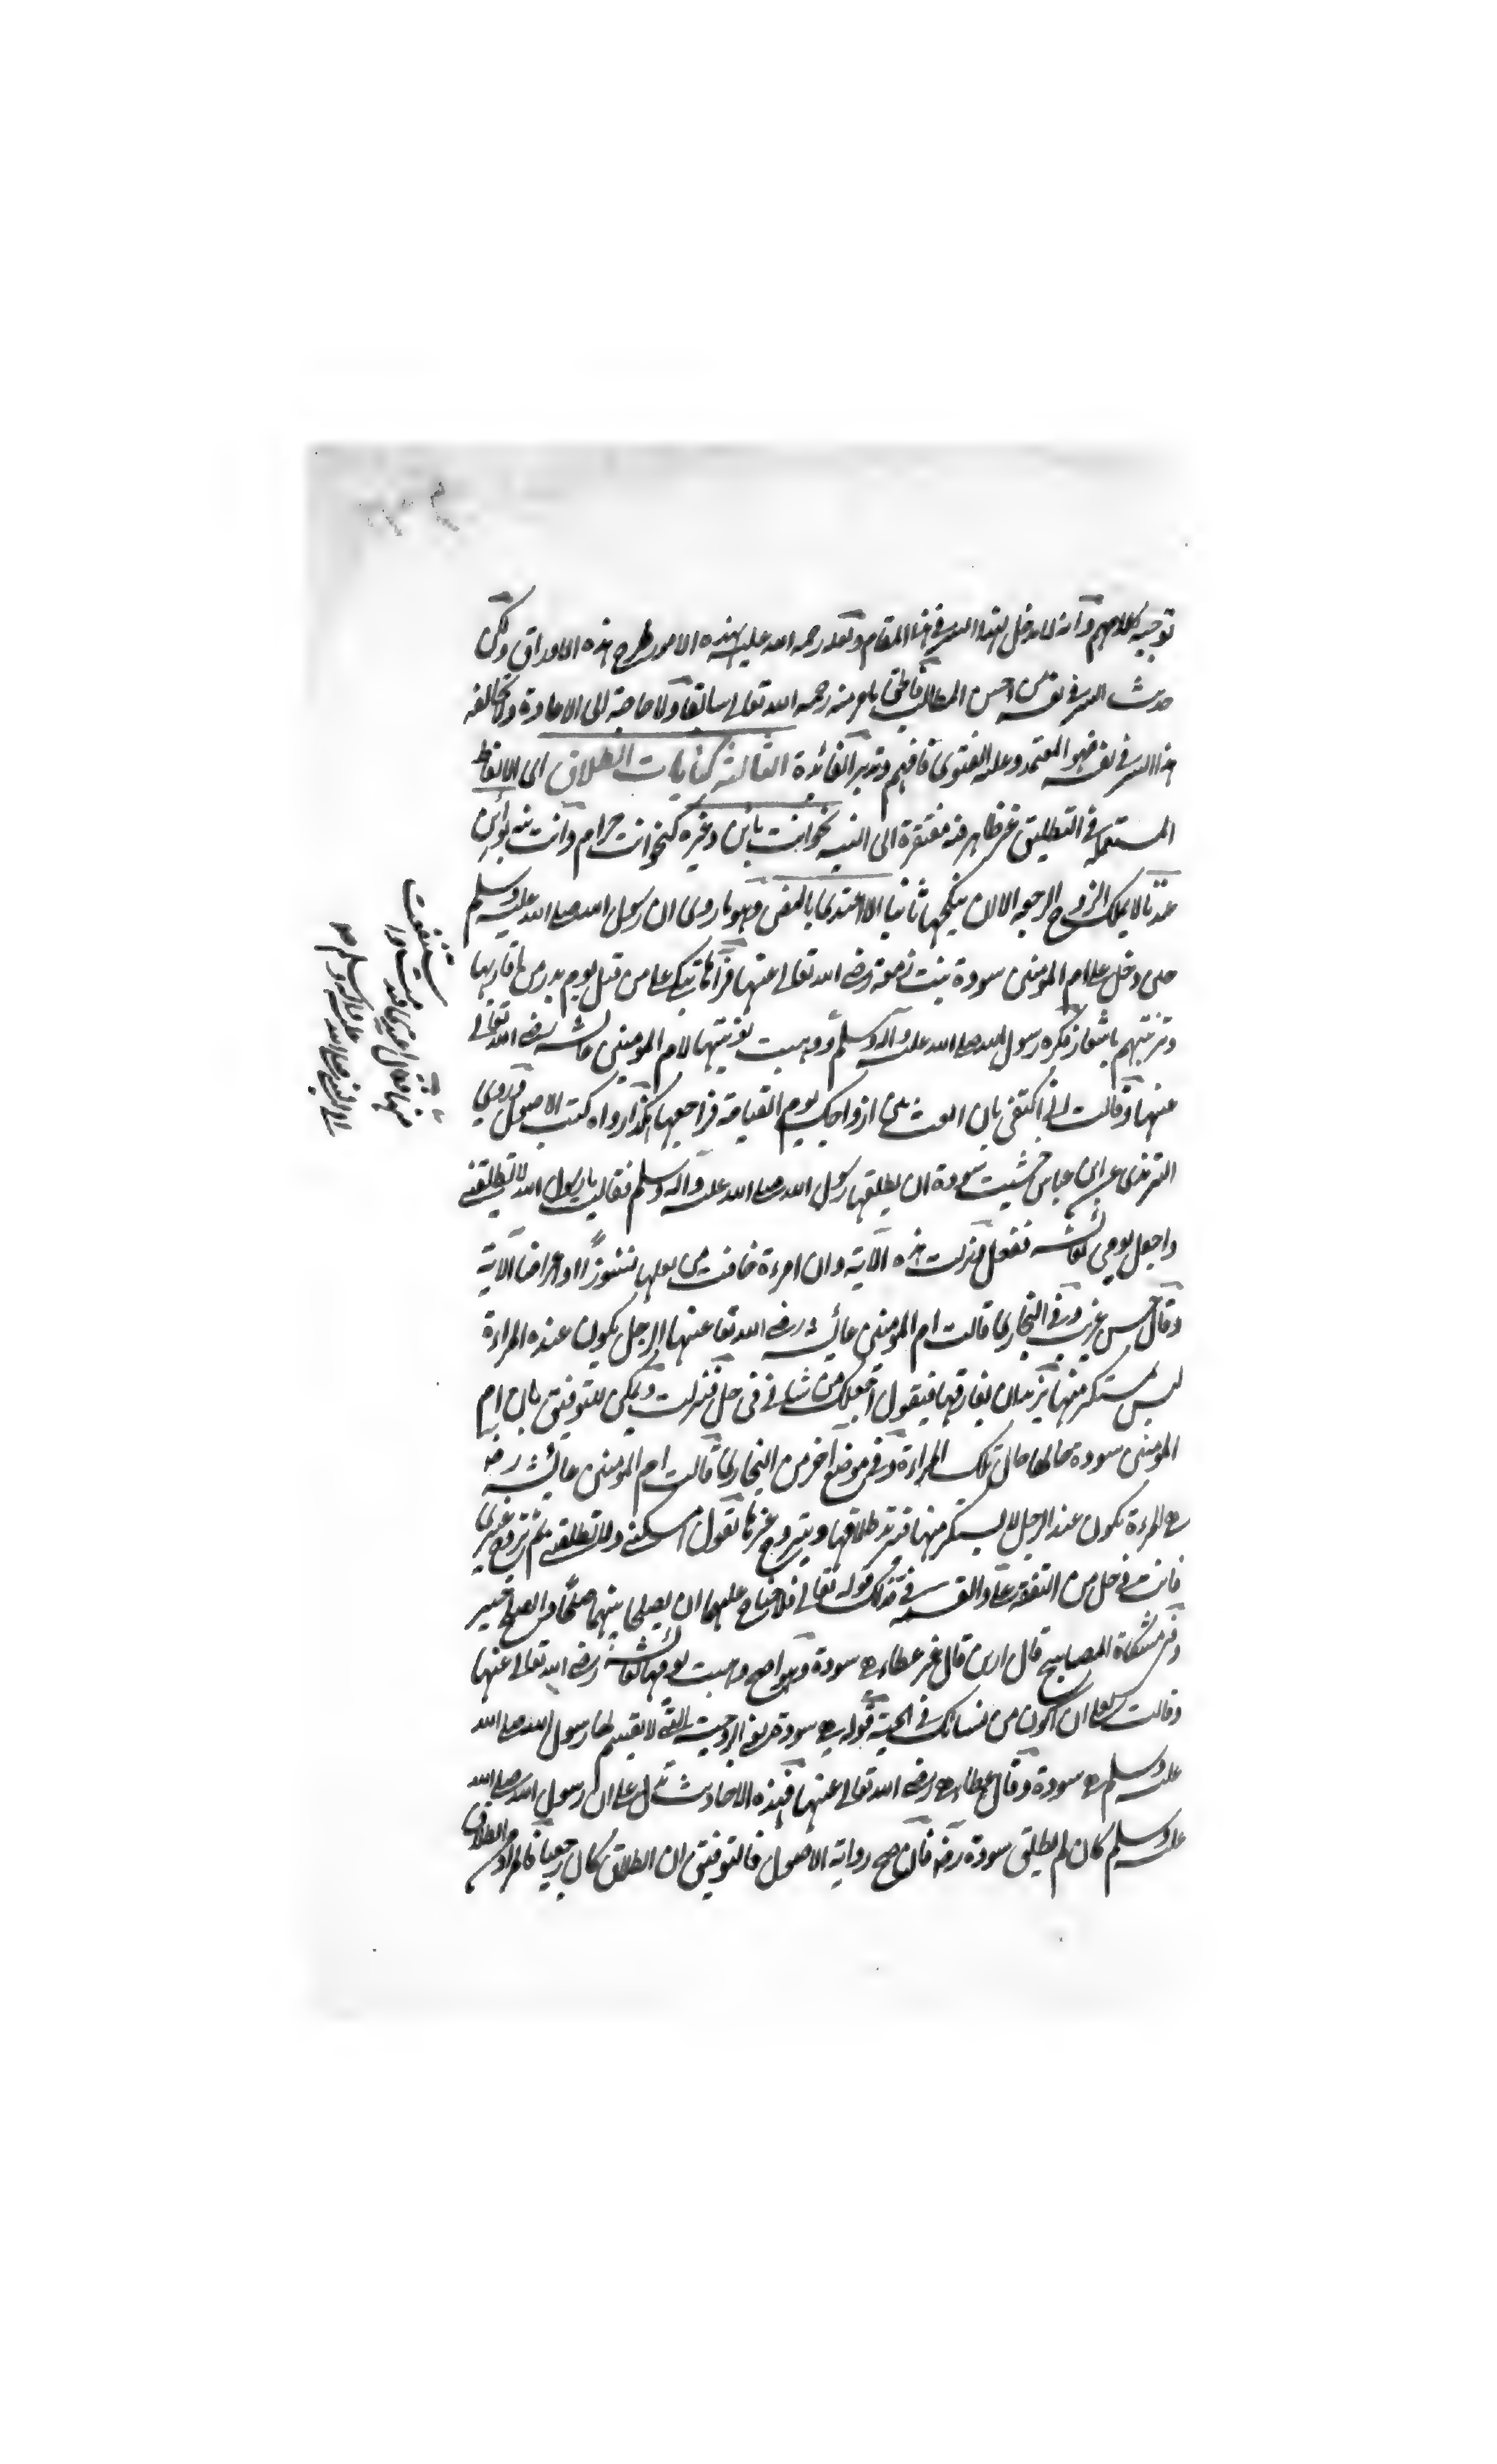 توجيه كلامهم وانه لا دخل لهذا السر في هذا المقام ولعله رحمه الله عليه لهذه الامور طرح هذه الاوراق ولكن
حديث السر في نفسه من احسن المطالب رحمه الله تعالى سابقا ولا حاجة الى الاعادة ولا تخالفه
هذا السر في نفسه فهو المعتمد وعليه الفتوى فافهم وتدبر الفائدة الثالثة كنايات الطلاق اى الالفاظ
المستعملة في التطليق غير ظاهرة مفتقرة الى النية نحو انت بائن وغيره كنحو انت حرام وانت بتة بوائن
عندنا لا يملك الزوج الرجعة الا ان ينكحها ثانيا الا اعتدى بالنص وهو ما روى ان رسول الله صلى الله عليه وسلم
حين دخل على ام المؤمنين سودة بنت زمعة رضى الله تعالى عنها فرآها تبكى على من قتل يوم بدر من اقاربها
وترثيهم باشعار فكره رسول الله صلى الله عليه وآله وسلم ووهبت نوبتها لام المؤمنين عائشة رضى الله تعالى
عنها وقالت انى اكتفى بان ابعث من ازواجك يوم القيامة فراجعها كذا رواه كتب الاصول وروى
الترمذى عن ابن عباس خشيت سودة ان يطلقها رسول الله صلى الله عليه وآله وسلم فقالت يا رسول الله لا تطلقنى
واجعل يومى لعائشة ففعل فنزلت هذه الآية وان امرءة خافت من بعلها نشوزًا او اعراضا الآية
وقال حسن غريب وفى البخارى قالت ام المؤمنين عائشة رضى الله تعا عنها الرجل يكون عنده المراءة
ليس بمستكثر منها يريد ان يفارقها فيقول اجعلك من شانى فى حل فنزلت ويمكن التوفيق بان ام
المؤمنين سودة حالها حال تلك المراءة وفى موضع آخر من البخارى قالت ام المؤمنين عائشة رضـ
هى المرءة تكون عند الرجل لا يستكثر منها فيريد طلاقها ويتزوج غيرها تقول امسكنى ولا تطلقنى ثم تزوج غيرى
فانت في حل من النفقة على والقسمة لى فذلك قوله تعالى فلا جناح عليهما ان يصلحا بينهما صلحًا والصلح خير
وفى مشكاة المصابيح قال رزين قال غير عطاء هى سودة وهو اصح وهبت يومها لعائشة رضى الله تعالى عنها
وقالت لعلى ان اكون من نسائك في الجنة قوله هى سودة يعنى الزوجة التى لا يقسم لها رسول الله صلى الله
عليه وسلم هى سودة وقال عطاء هى رضى الله تعالى عنها فهذه الاحاديث تدل على ان رسول الله صلى الله
عليه وسلم كان لم يطلق سودة رضـ فان صح رواية الاصول فالتوفيق ان الطلاق كان رجعيا فالمراد من الطلاق
منها فقال اعتدى
عليه وآله وسلم